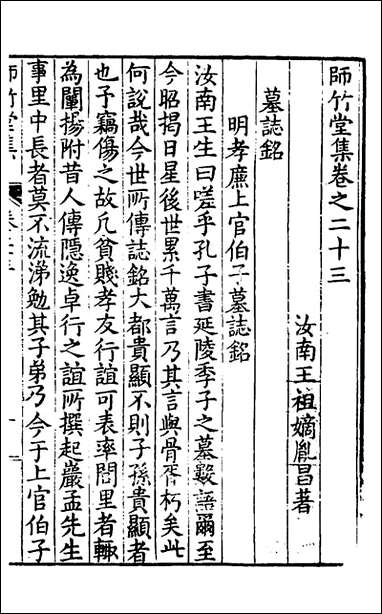 師竹堂集卷之二十三
汝南王祖嫡胤昌著
墓誌銘
明孝廉上官伯子墓誌銘
汝南王生曰嗟乎孔子書延陵季子之墓數語爾至
今昭揭日星後世累千萬言乃其言與骨胥朽矣此
何說哉今世所傳誌銘大都貴顯不則子孫貴顯者
也予竊傷之故凡貧賤孝友行誼可表率閭里者輙
為闡揚附昔人傳隱逸卓行之誼所撰起嚴孟先生
事里中長者莫不流涕勉其子弟乃今于上官伯子
師竹堂集 卷二十三 一